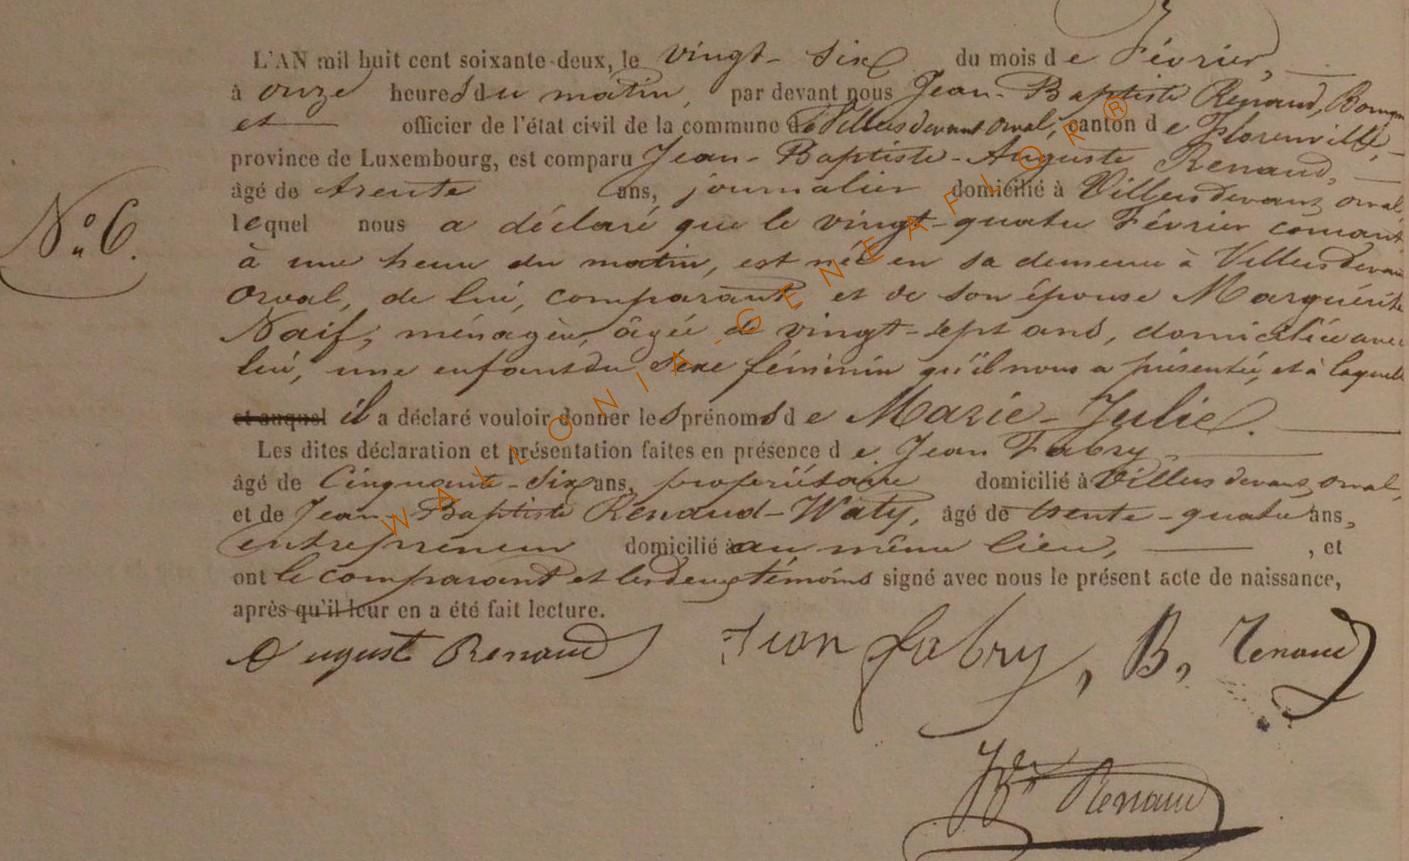 L'AN mil huit cent soixante-deux, le vingt-six du mois de Février,
à onze heures du matin, par devant nous Jean-Baptiste Renaud,
et officier de l'état civil de la commune de Villers devant Orval, canton de Florenville,
province de Luxembourg, est comparu Jean-Baptiste-Auguste Renaud,
âgé de trente ans, journalier domicilié à Villers devant orval,
N° 6.
lequel nous a déclaré que le vingt-quatre Février courant
à une heure du matin, est née en sa demeure à Villers devant
Orval, de lui, comparant et de son épouse Marguérite
Naif, ménagère, âgée de vingt-sept ans, domiciliée avec
lui, une enfant du sexe féminin qu'il nous a présentée, et à laquelle
et auquel il a déclaré vouloir donner les prénoms de Marie-Julie.
Les dites déclaration et présentation faites en présence de Jean Fabry
âgé de Cinquante-six ans, propriétaire domicilié à Villers devant orval,
et de Jean-Baptiste Renaud-Waty, âgé de trente-quatre ans,
entrepreneur domicilié à au même lieu, , et
ont le comparant et les deux témoins signé avec nous le présent acte de naissance,
après qu'il leur en a été fait lecture.
Auguste Renaud Jean fabry, B, Renaud
Renaud
WALLONIA-GENEAFLOR®